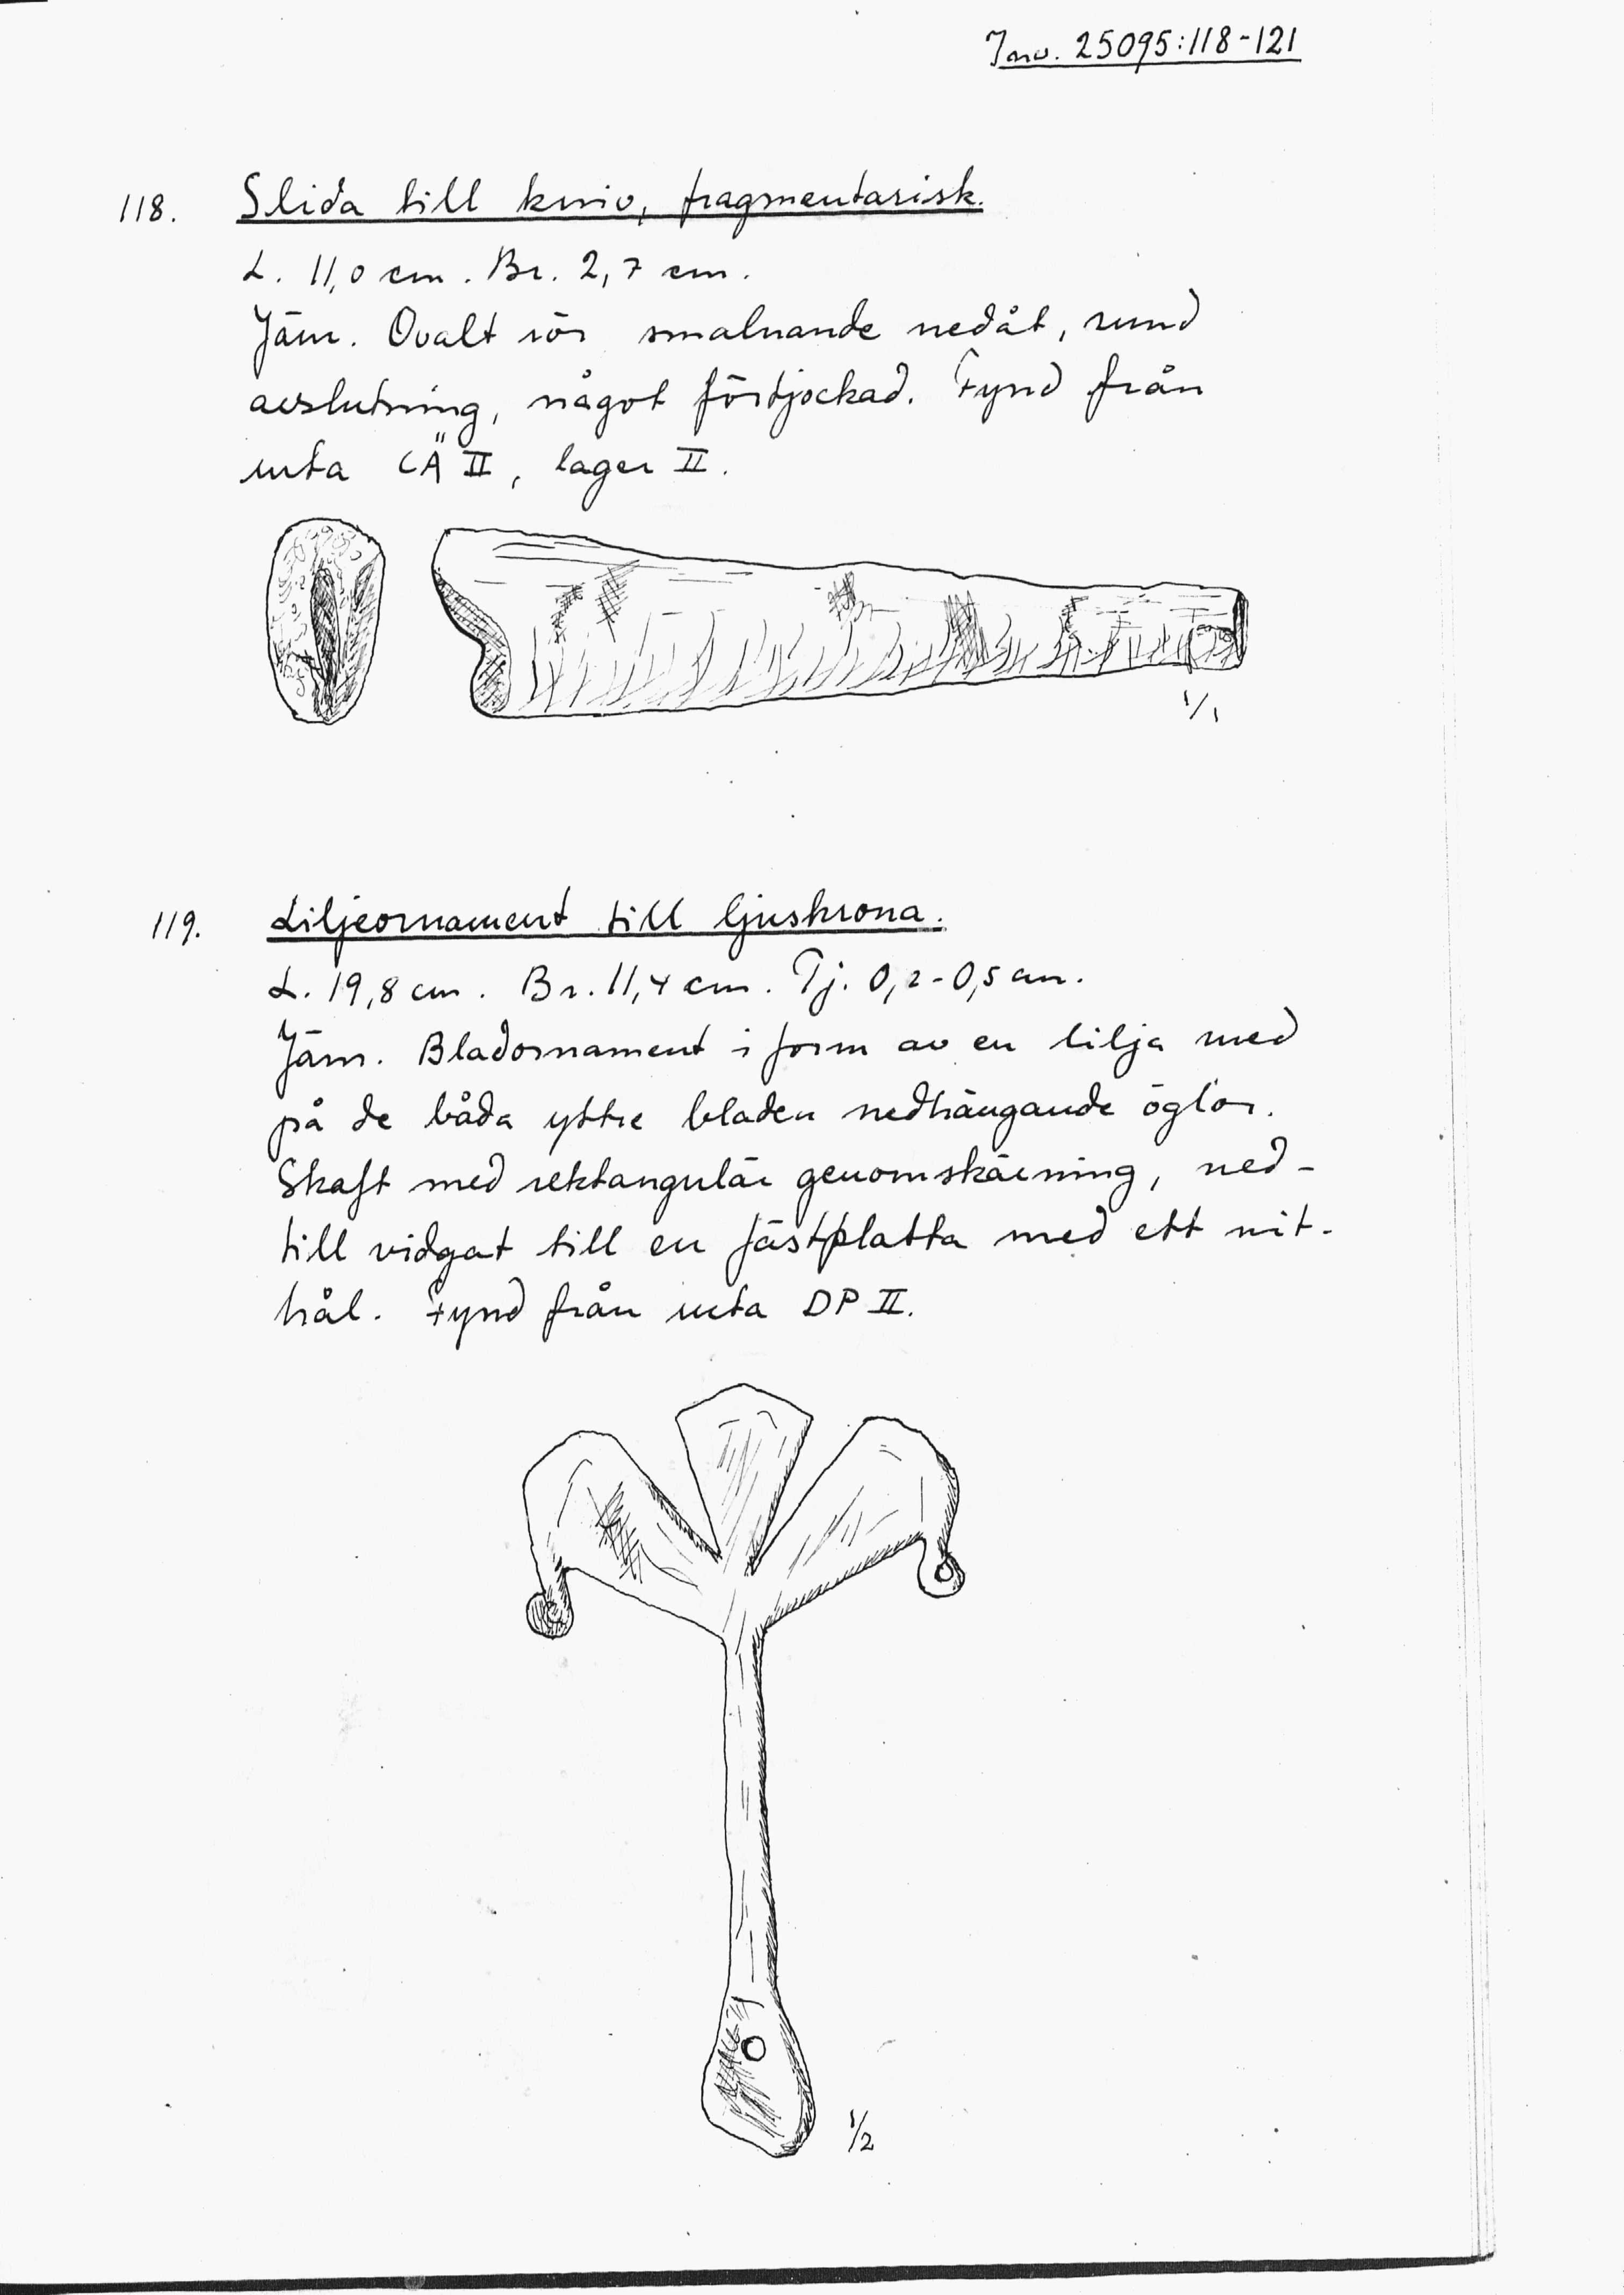 Inv. 25095:118-121
118. Slida till kniv, fragmentarisk.
L. 11,0 cm. Br. 2,7 cm.
Järn. Ovalt rör smalnande nedåt, rund
avslutning, något förtjockad. Fynd från
ruta CÄ II, lager II.
1/1
119. Liljeornament till ljuskrona.
L. 19,8 cm. Br. 11,4 cm. Tj. 0,2-0,5 cm.
Järn. Bladornament i form av en lilja med
på de båda yttre bladen nedhängande öglor.
Skaft med rektangulär genomskärning, ned-
till vidgat till en fästplatta med ett nit-
hål. Fynd från ruta DP II.
1/2